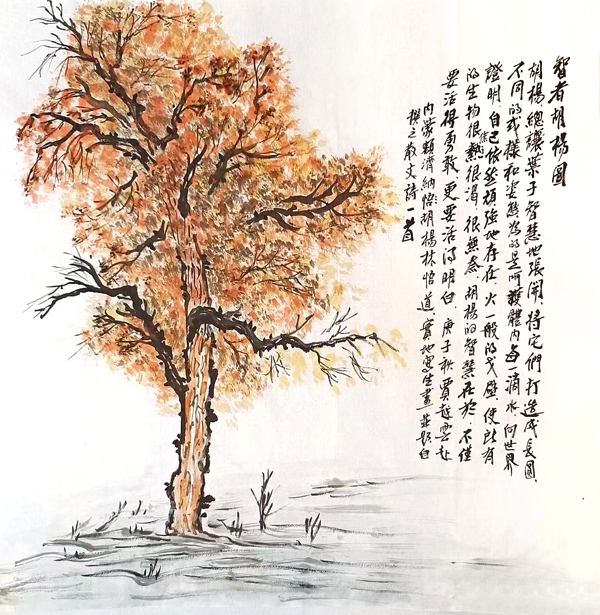 智者胡楊圖
胡楊總讓葉子智慧地張開，將它們打造成長圓、
不同的式樣和姿態為的是呵護體內每一滴水，向世界
證明自己依然頑強地存在，火一般的戈壁，使所有
的生物很熱很渴、很無奈，胡楊的智慧在於，不僅
要活得勇敢，更要活得明白。庚子秋賈越雲赴
內蒙額濟納悟胡楊林悟道，實地寫生畫並題白
撰之散文詩一首